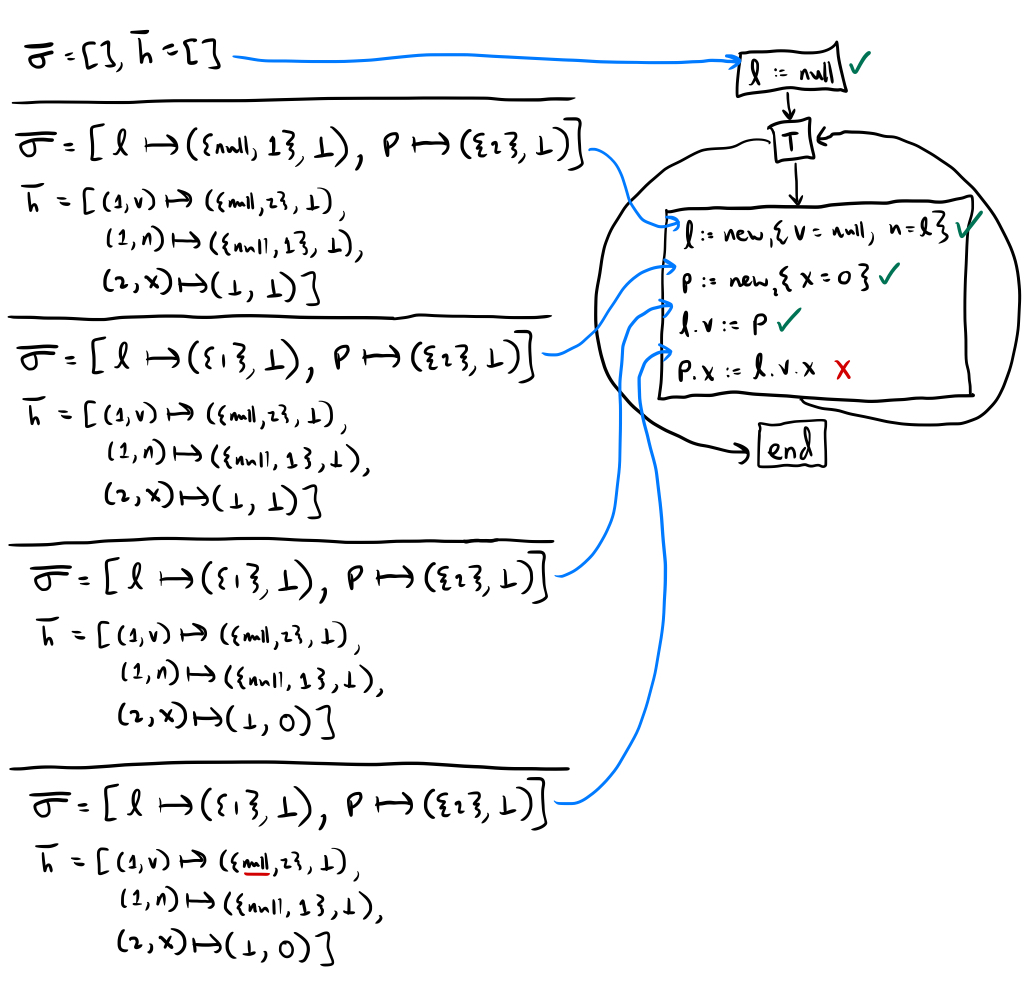 σ̅ = [], h̅ = []
l := null ✓
σ̅ = [l ↦ ({null, 1}, ⊥), p ↦ ({2}, ⊥)]
h̅ = [(1, v) ↦ ({null, 2}, ⊥),
(1, n) ↦ ({null, 1}, ⊥),
(2, x) ↦ (⊥, ⊥)]
σ̅ = [l ↦ ({1}, ⊥), p ↦ ({2}, ⊥)]
h̅ = [(1, v) ↦ ({null, 2}, ⊥),
(1, n) ↦ ({null, 1}, ⊥),
(2, x) ↦ (⊥, ⊥)]
σ̅ = [l ↦ ({1}, ⊥), p ↦ ({2}, ⊥)]
h̅ = [(1, v) ↦ ({null, 2}, ⊥),
(1, n) ↦ ({null, 1}, ⊥),
(2, x) ↦ (⊥, 0)]
σ̅ = [l ↦ ({1}, ⊥), p ↦ ({2}, ⊥)]
h̅ = [(1, v) ↦ ({null, 2}, ⊥),
(1, n) ↦ ({null, 1}, ⊥),
(2, x) ↦ (⊥, 0)]
T
l := new₁{v = null, n = l} ✓
p := new₂{x = 0} ✓
l.v := p ✓
p.x := l.v.x X
end